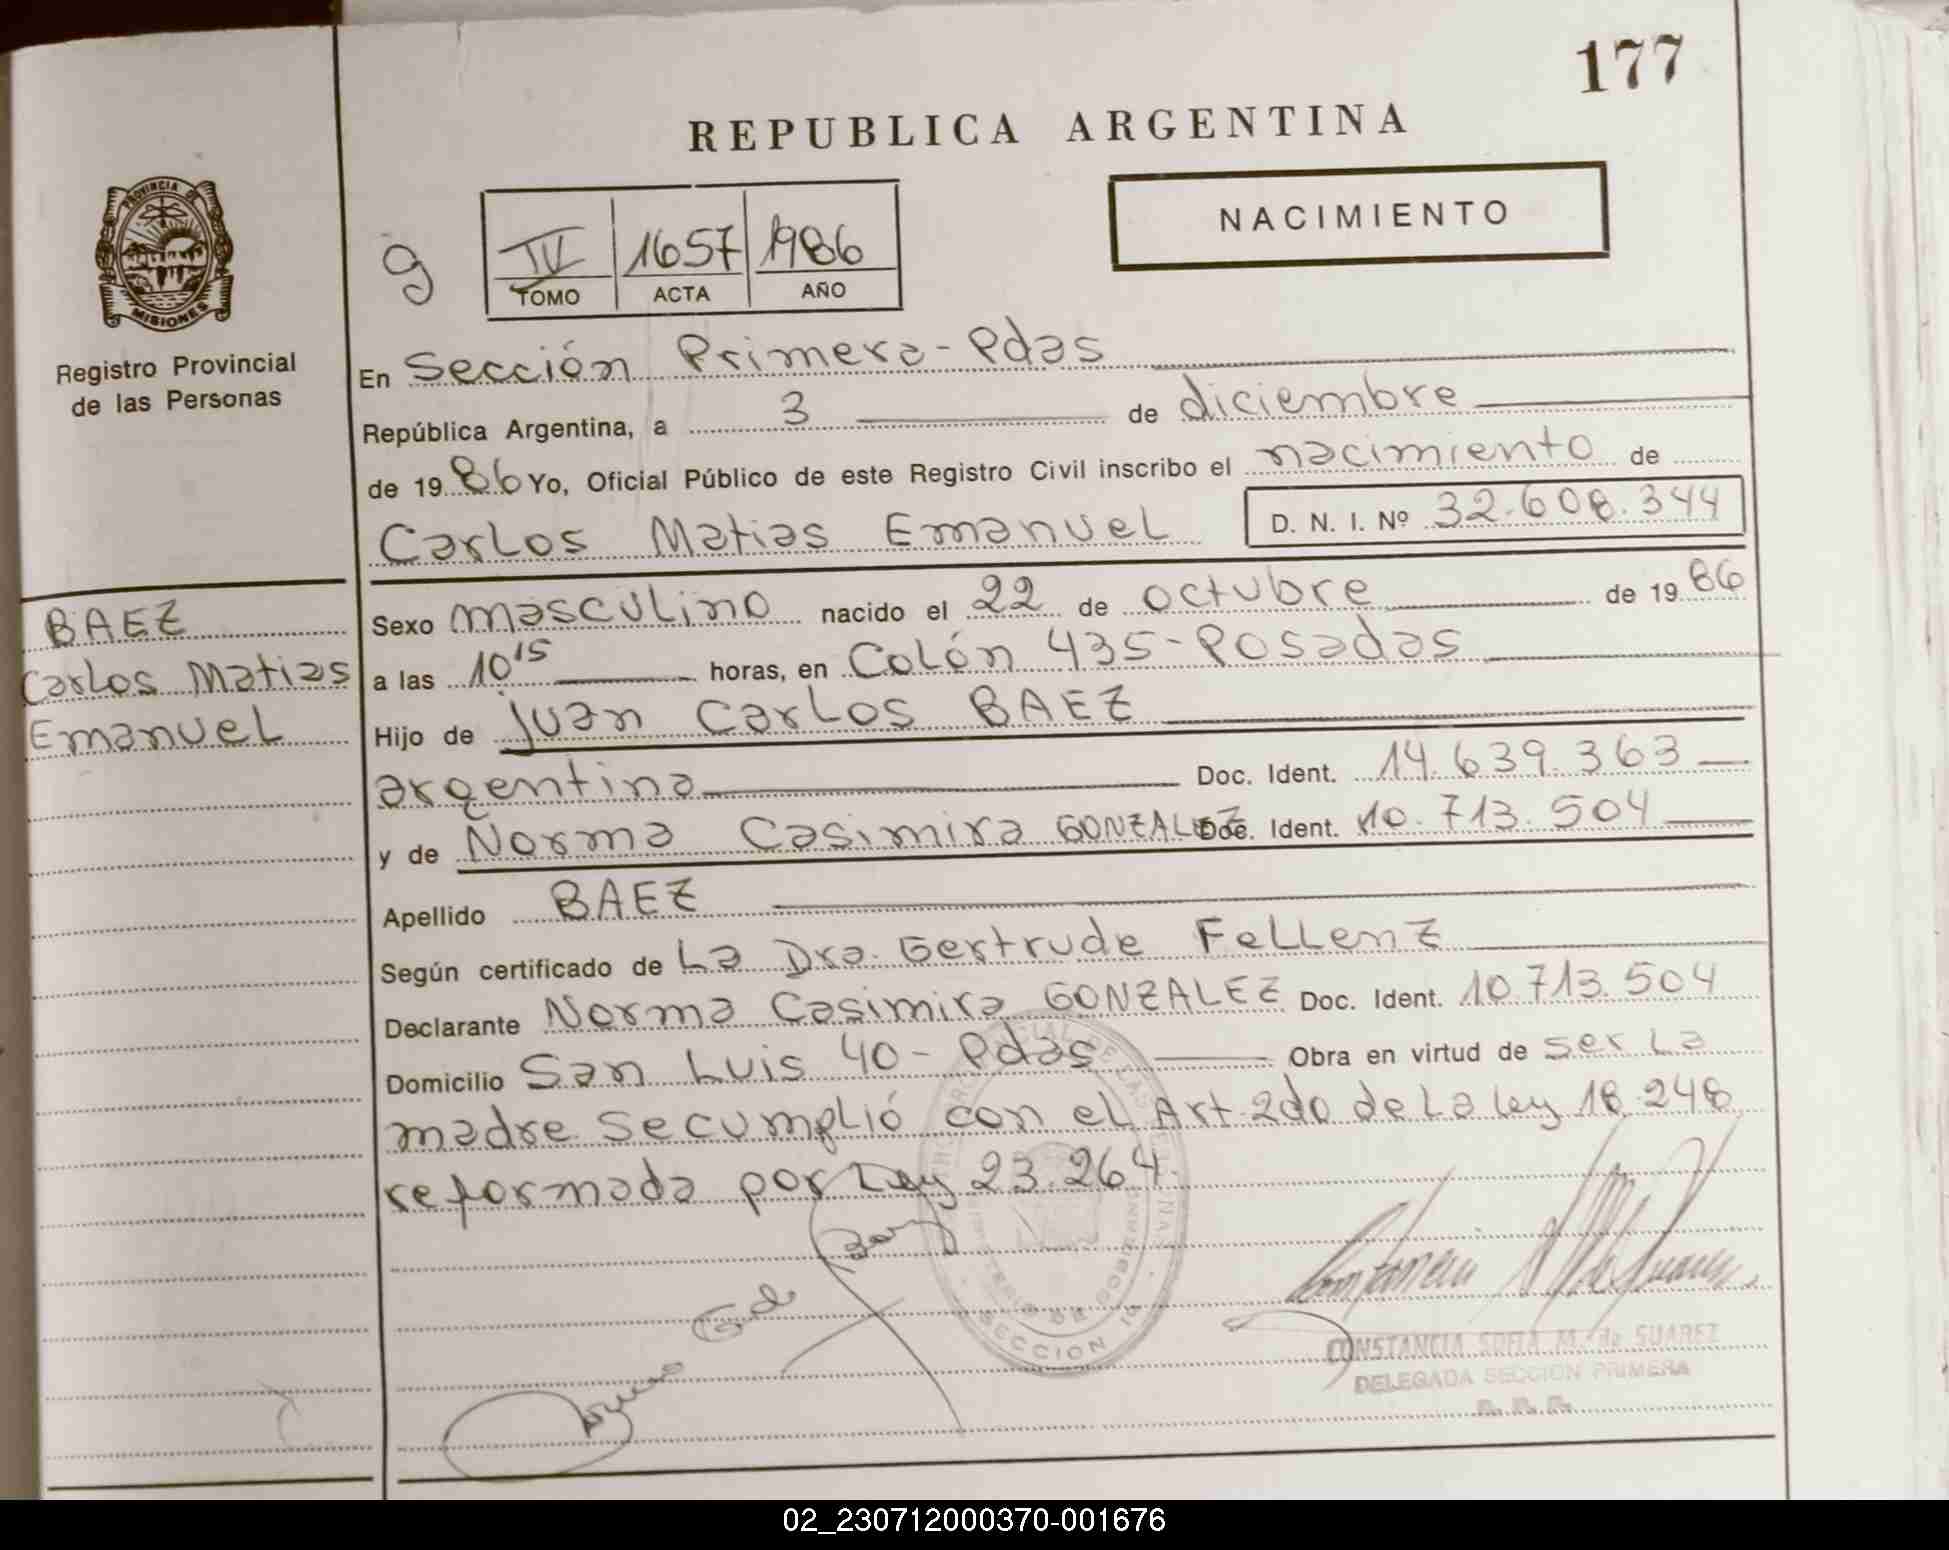 177
REPUBLICA ARGENTINA
PROVINCIA DE
MISIONES
Registro Provincial
de las Personas
9
IV 1657 1986
TOMO ACTA AÑO
NACIMIENTO
En Sección Primera-Pdas
República Argentina, a 3 de diciembre
de 1986 Yo, Oficial Público de este Registro Civil inscribo el nacimiento de
Carlos Matias Emanuel D. N. I. Nº 32.608.344
BAEZ
Carlos Matias
Emanuel
Sexo masculino nacido el 22 de octubre de 1986
a las 10 15 horas, en Colón 435-Posadas
Hijo de Juan Carlos BAEZ
argentina Doc. Ident. 14.639.363
y de Norma Casimira GONZALEZ Doc. Ident. 10.713.504
Apellido BAEZ
Según certificado de La Dra. Gertrude FeLLenz
Declarante Norma Casimira GONZALEZ Doc. Ident. 10.713.504
Domicilio San Luis 40 - Pdas Obra en virtud de ser La
madre se cumplió con el Art. 2do de La Ley 18.248
reformada por Ley 23.264.
SECCION 1a
CONSTANCIA SOFIA M. de SUAREZ
DELEGADA SECCION PRIMERA
02_230712000370-001676